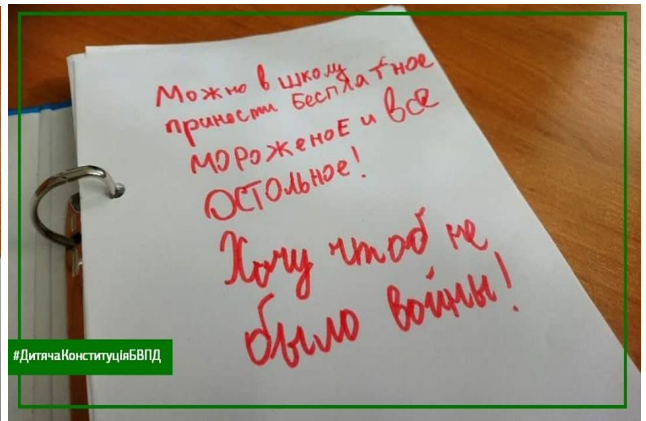 Можно в школу
принести бесплатное
мороженое и все
остольное!
Хочу чтоб не
было войны!
#ДитячаКонституціяБВПД